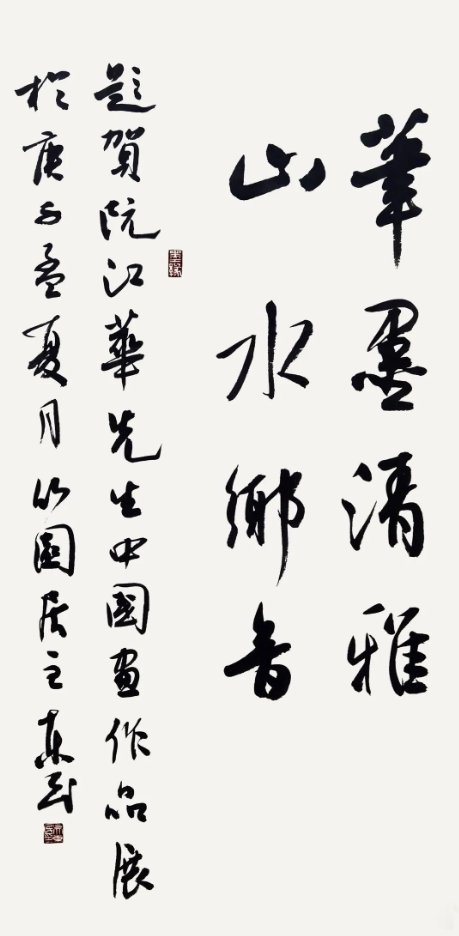 筆墨清雅
山水鄉音
題賀阮江華先生中國畫作品展
於庚子孟夏月竹園居主